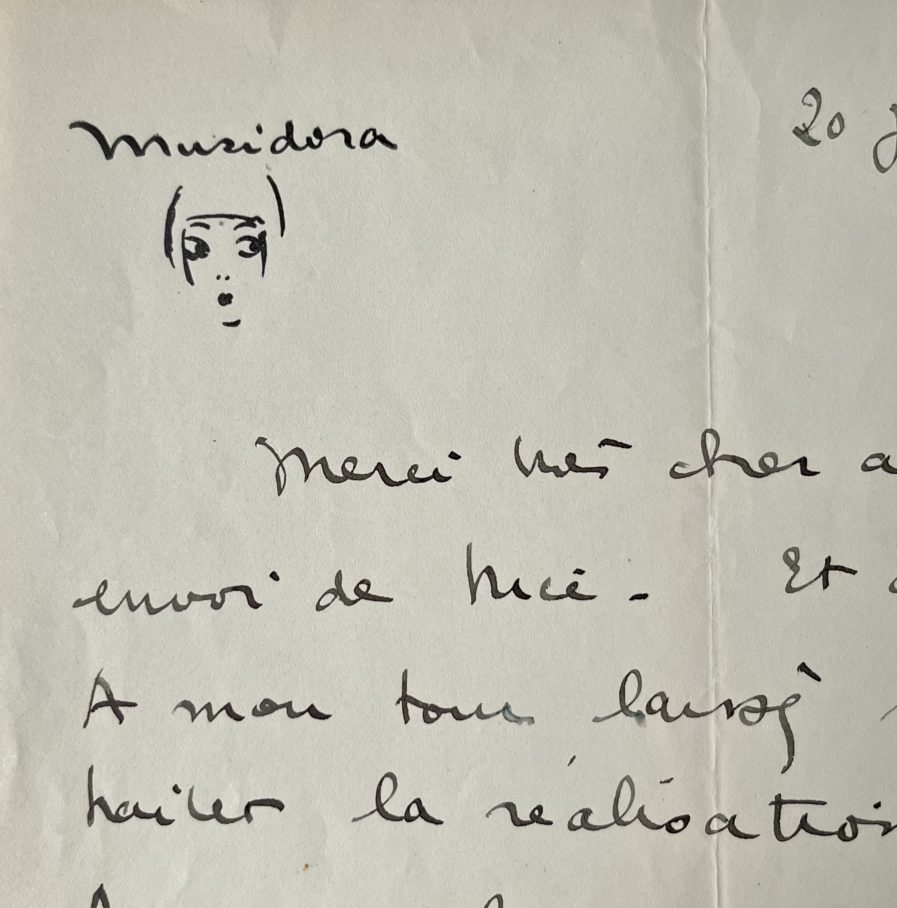 Musidora
20
Merci très cher a
envoi de Nice. Et
A mon tour laissez
haiter la réalisation